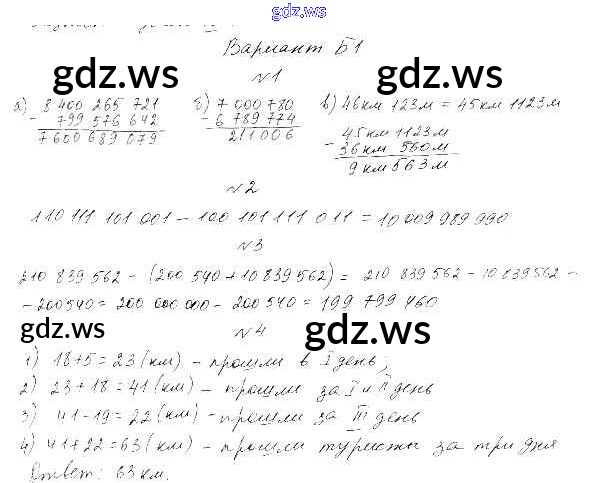 gdz.ws
Вариант Б1
№1
а) 8 400 265 721 б) 7 000 780 в) 46км 123м = 45км 1123м
- 799 576 642 - 6 789 774 45км 1123м
7600 689 079 211 006 - 36км 560м
9 км 563м
№2
110 111 101 001 - 100 101 111 011 = 10 009 989 990
№3
210 839 562 - (200 540 + 10 839 562) = 210 839 562 - 10 839 562 -
- 200 540 = 200 000 000 - 200 540 = 199 799 460
№4
1) 18+5=23 (км) - прошли в I день;
2) 23+18=41 (км) - прошли за I и II день
3) 41-19=22 (км) - прошли за III день
4) 41+22=63 (км) - прошли туристы за три дня
Ответ: 63 км.
gdz.ws
gdz.ws
gdz.ws
gdz.ws